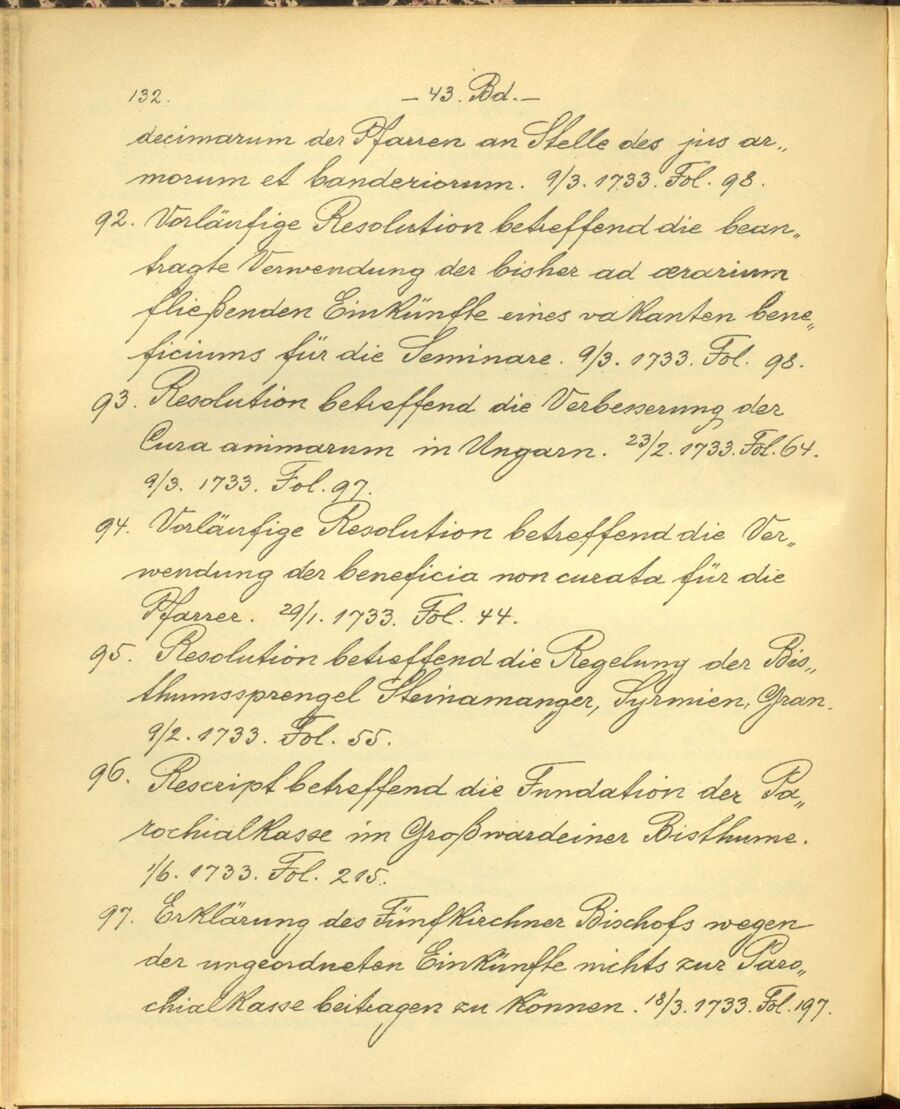 132.
– 43. Bd. –
decimarum der Pfarren an Stelle des jus ar„
morum et banderiorum. 9/3. 1733. Fol. 98.
92. Vorläufige Resolution betreffend die bean„
tragte Verwendung der bisher ad ærarium
fließenden Einkünfte eines vakanten bene„
ficiums für die Seminare. 9/3. 1733. Fol. 98.
93. Resolution betreffend die Verbesserung der
Cura animarum in Ungarn. 23/2. 1733. Fol. 64.
9/3. 1733. Fol. 97.
94. Vorläufige Resolution betreffend die Ver„
wendung der beneficia non curata für die
Pfarrer. 29/1. 1733. Fol. 44.
95. Resolution betreffend die Regelung der Bis„
thumssprengel Steinamanger, Syrmien, Gran.
9/2. 1733. Fol. 55.
96. Rescript betreffend die Fundation der Pa„
rochialkasse im Großwardeiner Bisthume.
1/6. 1733. Fol. 215.
97. Erklärung des Fünfkirchner Bischofs wegen
der ungeordneten Einkünfte nichts zur Paro„
chialkasse beitragen zu können. 18/3. 1733. Fol. 197.